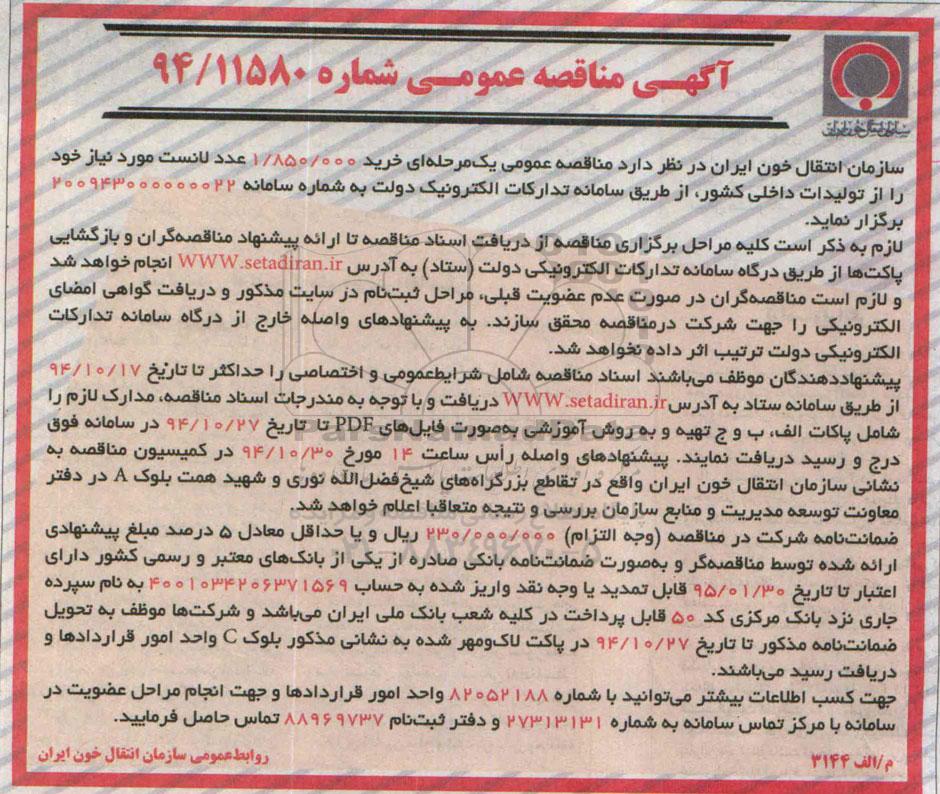 آگهی مناقصه عمومی شماره ۹۴/۱۱۵۸۰
سازمان انتقال خون ایران در نظر دارد مناقصه عمومی یک‌مرحله‌ای خرید ۱/۸۵۰/۰۰۰ عدد لانست مورد نیاز خود
را از تولیدات داخلی کشور، از طریق سامانه تدارکات الکترونیک دولت به شماره سامانه ۲۰۰۹۴۳۰۰۰۰۰۰۰۲۲
برگزار نماید.
لازم به ذکر است کلیه مراحل برگزاری مناقصه از دریافت اسناد مناقصه تا ارائه پیشنهاد مناقصه‌گران و بازگشایی
پاکت‌ها از طریق درگاه سامانه تدارکات الکترونیکی دولت (ستاد) به آدرس WWW.setadiran.ir انجام خواهد شد
و لازم است مناقصه‌گران در صورت عدم عضویت قبلی، مراحل ثبت‌نام در سایت مذکور و دریافت گواهی امضای
الکترونیکی را جهت شرکت درمناقصه محقق سازند. به پیشنهادهای واصله خارج از درگاه سامانه تدارکات
الکترونیکی دولت ترتیب اثر داده نخواهد شد.
پیشنهاددهندگان موظف می‌باشند اسناد مناقصه شامل شرایط‌عمومی و اختصاصی را حداکثر تا تاریخ ۹۴/۱۰/۱۷
از طریق سامانه ستاد به آدرس WWW.setadiran.ir دریافت و با توجه به مندرجات اسناد مناقصه، مدارک لازم را
شامل پاکات الف، ب و ج تهیه و به روش آموزشی به‌صورت فایل‌های PDF تا تاریخ ۹۴/۱۰/۲۷ در سامانه فوق
درج و رسید دریافت نمایند. پیشنهادهای واصله رأس ساعت ۱۴ مورخ ۹۴/۱۰/۳۰ در کمیسیون مناقصه به
نشانی سازمان انتقال خون ایران واقع در تقاطع بزرگراه‌های شیخ‌فضل‌الله نوری و شهید همت بلوک A در دفتر
معاونت توسعه مدیریت و منابع سازمان بررسی و نتیجه متعاقبا اعلام خواهد شد.
ضمانت‌نامه شرکت در مناقصه (وجه التزام) ۲۳۰/۰۰۰/۰۰۰ ریال و یا حداقل معادل ۵ درصد مبلغ پیشنهادی
ارائه شده توسط مناقصه‌گر و به‌صورت ضمانت‌نامه بانکی صادره از یکی از بانک‌های معتبر و رسمی کشور دارای
اعتبار تا تاریخ ۹۵/۰۱/۳۰ قابل تمدید یا وجه نقد واریز شده به حساب ۴۰۰۱۰۳۴۲۰۶۳۷۱۵۶۹ به نام سپرده
جاری نزد بانک مرکزی کد ۵۰ قابل پرداخت در کلیه شعب بانک ملی ایران می‌باشد و شرکت‌ها موظف به تحویل
ضمانت‌نامه مذکور تا تاریخ ۹۴/۱۰/۲۷ در پاکت لاک‌ومهر شده به نشانی مذکور بلوک C واحد امور قراردادها و
دریافت رسید می‌باشند.
جهت کسب اطلاعات بیشتر می‌توانید با شماره ۸۲۰۵۲۱۸۸ واحد امور قراردادها و جهت انجام مراحل عضویت در
سامانه با مرکز تماس سامانه به شماره ۲۷۳۱۳۱۳۱ و دفتر ثبت‌نام ۸۸۹۶۹۷۳۷ تماس حاصل فرمایید.
م/الف ۳۱۴۴
روابط‌عمومی سازمان انتقال خون ایران